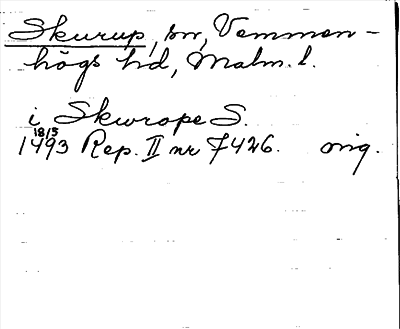 Skurup, sn, Vemmen-
högs hd, Malm. l.
i Skwrope S.
18/5
1493 Rep. II nr 7426. orig.